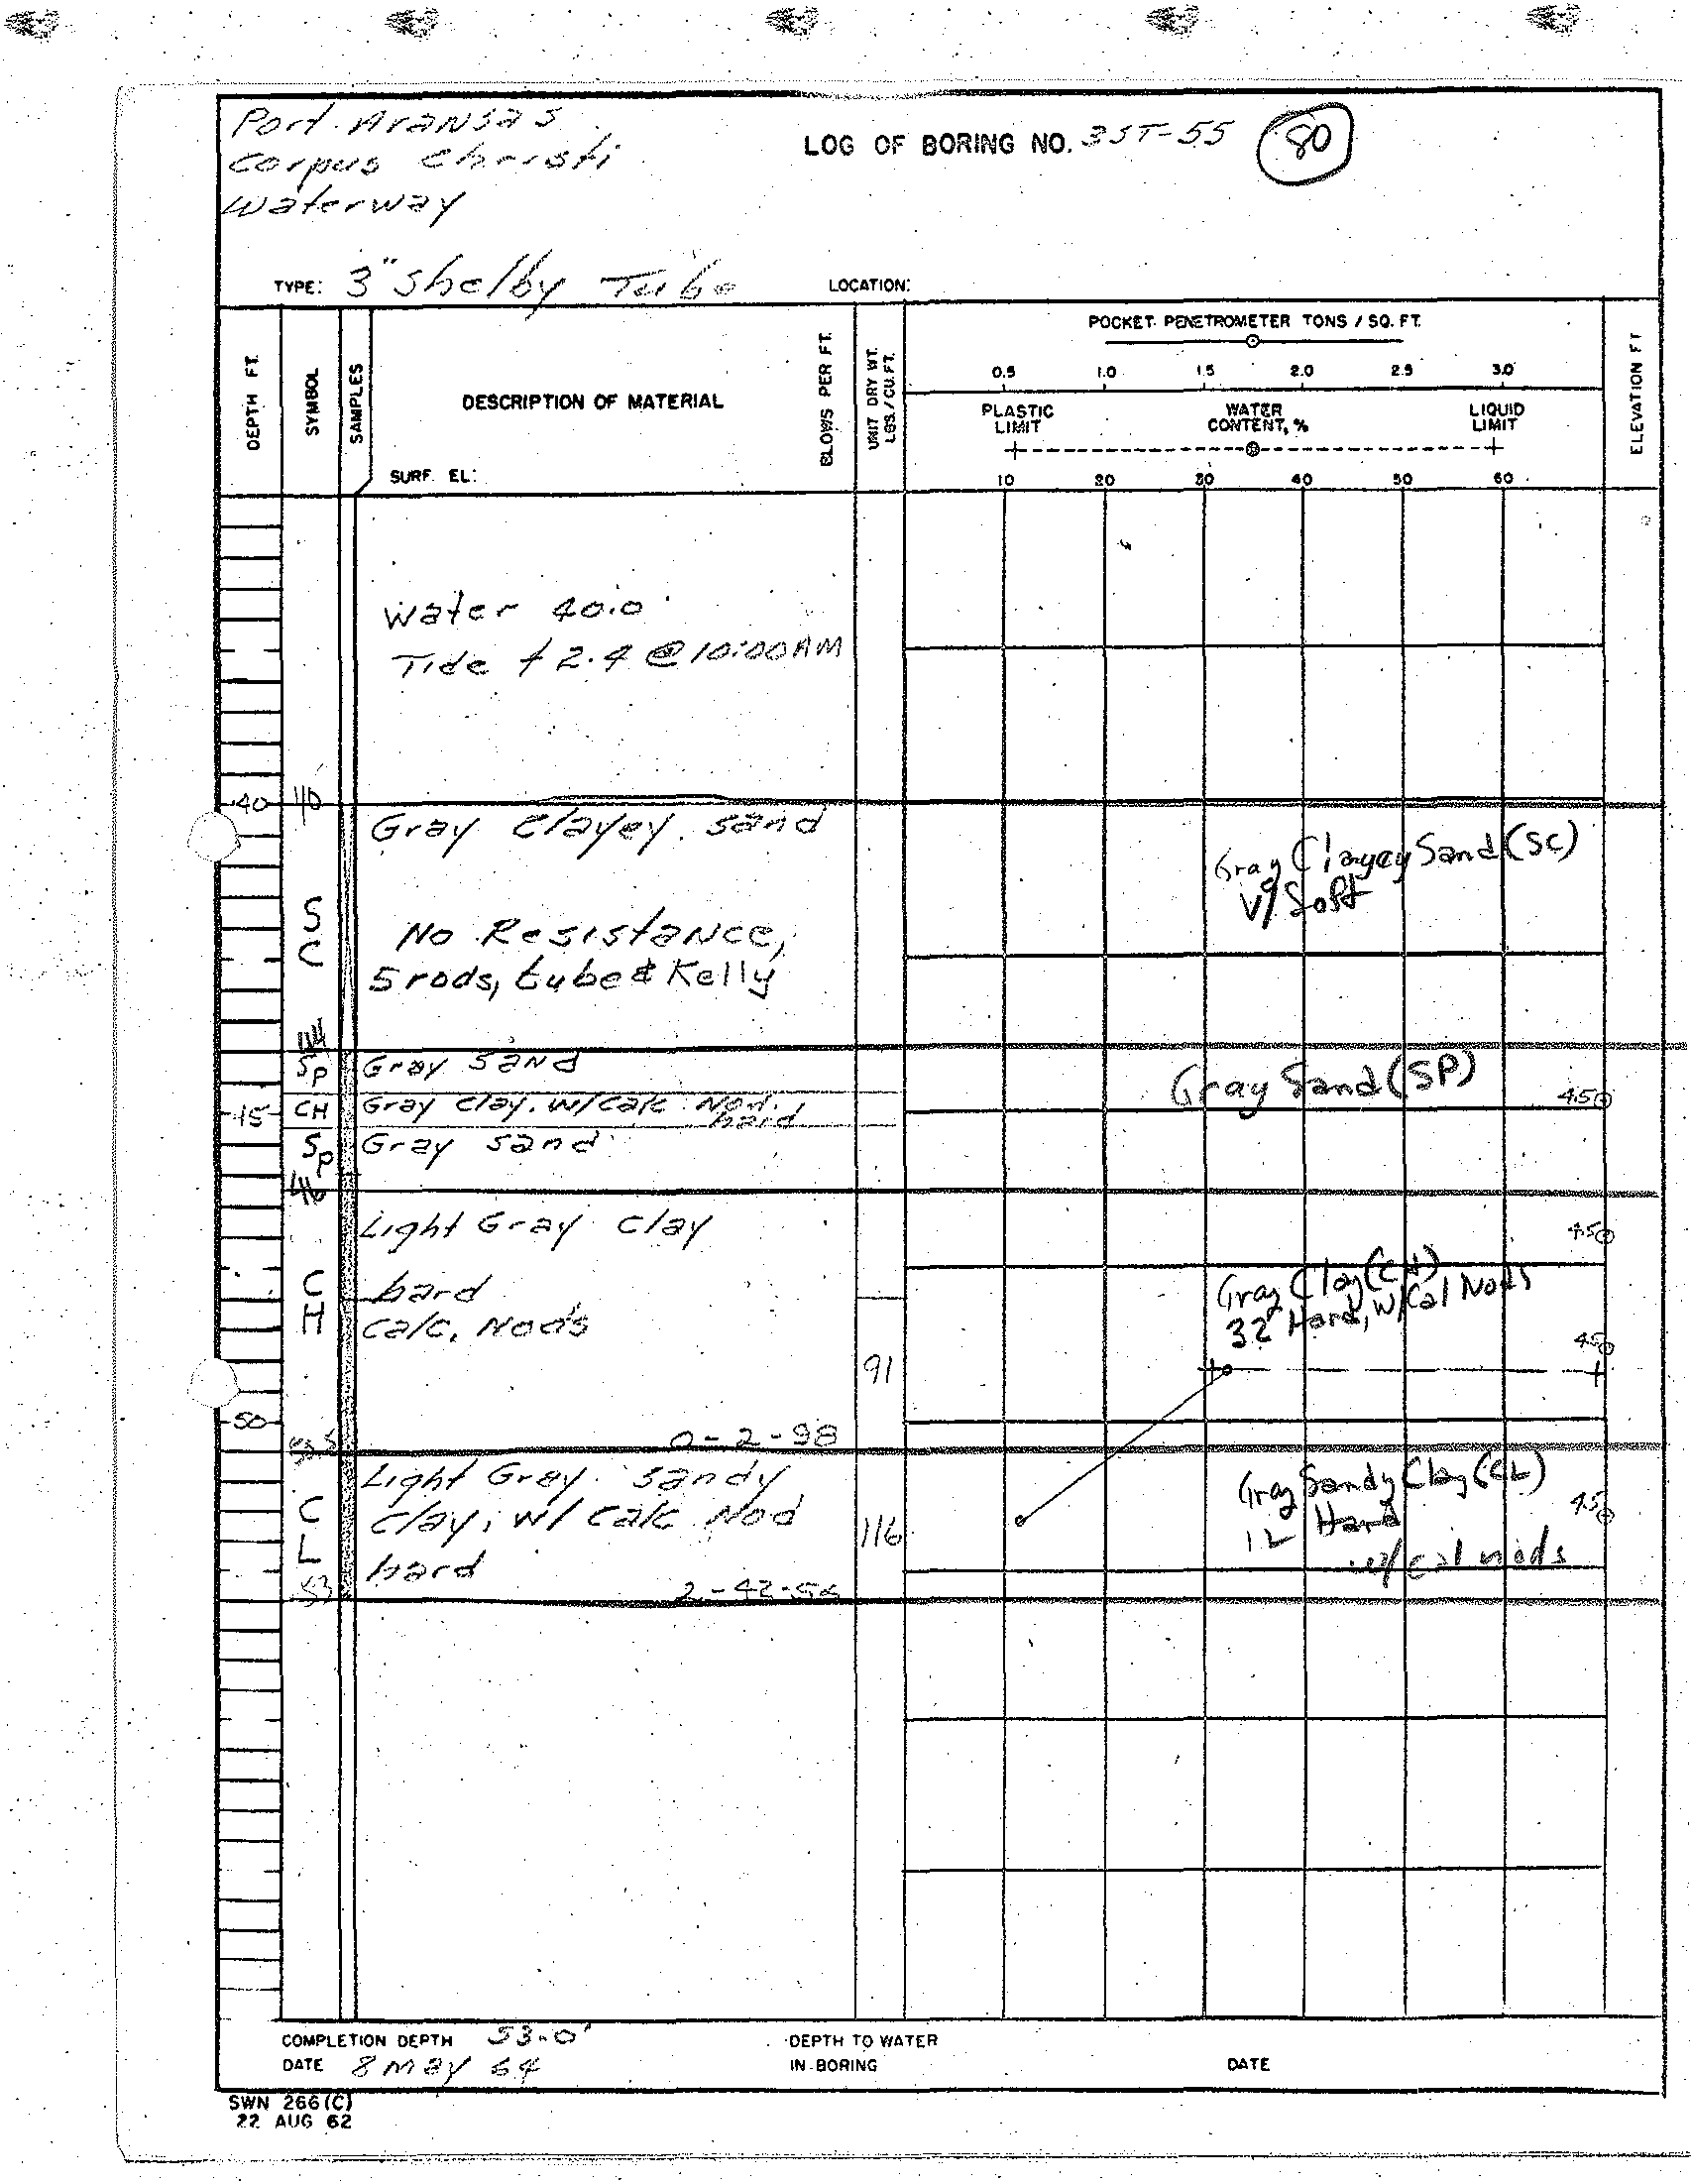 Port Aransas
Corpus Christi
Waterway
LOG OF BORING NO. 3ST-55 80
TYPE: 3" Shelby Tube LOCATION:
DEPTH FT.
SYMBOL
SAMPLES
DESCRIPTION OF MATERIAL
SURF. EL:
BLOWS PER FT.
UNIT DRY WT. LBS./CU.FT.
POCKET PENETROMETER TONS / SQ. FT.
0.5 1.0 1.5 2.0 2.5 3.0
PLASTIC LIMIT WATER CONTENT, % LIQUID LIMIT
10 20 30 40 50 60
ELEVATION FT
Water 40.0
Tide +2.4 @ 10:00AM
40 40
Gray Clayey Sand
Gray Clayey Sand (SC)
V/Soft
SC
No Resistance,
5 rods, tube & Kelly
44
SP Gray Sand
Gray Sand (SP)
45 CH Gray Clay w/calc Nod. hard 4.5
SP Gray Sand
46
Light Gray Clay 4.5
CH hard
Calc. Nods
Gray Clay (CH)
32 Hard, w/Cal Nods
4.5
91
50
0-2-98
Light Gray Sandy
Clay, w/ Calc Nod
hard
CL
116
Gray Sandy Clay (CL)
12 Hard
w/cal nods
4.5
53 2-42-56
COMPLETION DEPTH 53.0'
DATE 8 May 64
DEPTH TO WATER
IN BORING
DATE
SWN 266 (C)
22 AUG 62